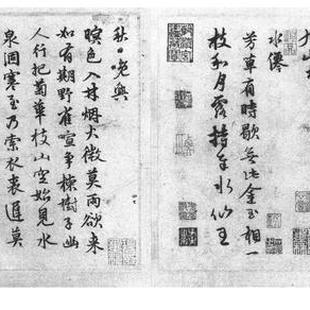 水僊
芳草有時歇無比金玉相一
枝和月露持奉水仙王
秋日晚興
暝色入林烟火微莫雨欲来
如有期野雀喧争楝樹子幽
人行把菊華枝山空始見水
泉涸寒至乃索衣裘遲莫